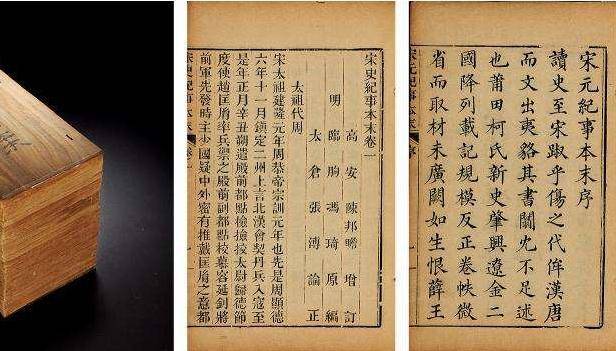 宋元紀事本末序
讀史至宋乎傷之代侔漢唐
而文出夷貉其書闕宂不足述
也莆田柯氏新史肇興遼金二
國降列載記規模反正卷帙微
省而取材未廣闕如生恨薛王
宋元紀事本末 序
宋史紀事本末卷一
高安陳邦瞻增訂
明臨朐馮琦原編
太倉張溥論正
太祖代周
宋太祖建隆元年周恭帝宗訓元年也先是周顯德
六年十一月鎮定二州上言北漢會契丹兵入寇至
是年正月辛丑朔遣殿前都點檢檢校太尉歸德節
度使趙匡胤率兵禦之殿前副都點檢慕容延釗將
前軍先發時主少國疑中外密有推戴匡胤之意都
宋史紀事本末